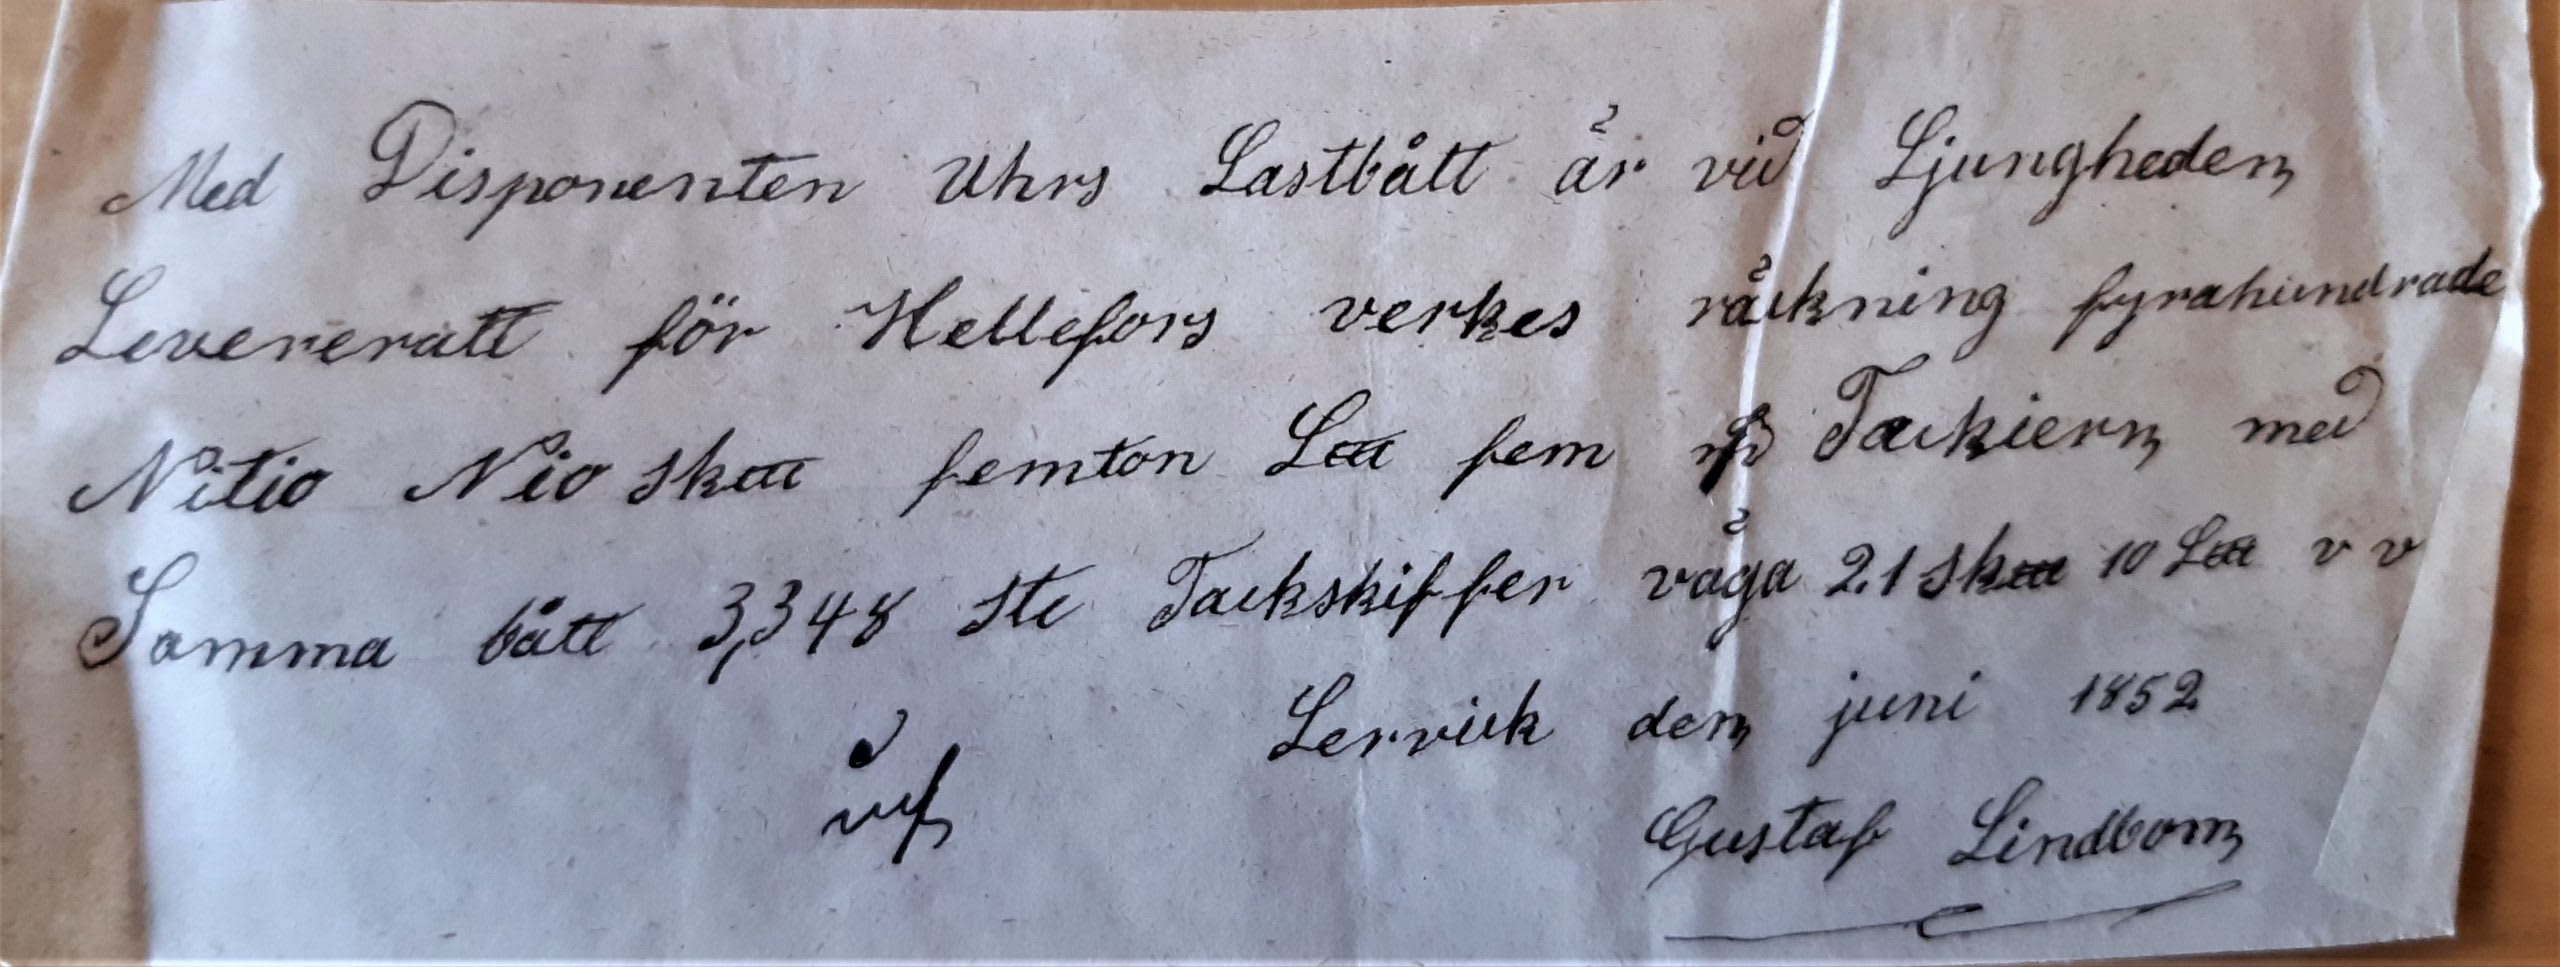 Med Disponenten Uhrs Lastbått är vid Ljungheden
Levereratt för Hellefors verkes räckning fyrahundrade
Nitio Nio Sk℔ femton L℔ fem Tackiern med
Samma bått 3,348 Ste Tackskiffer våga 21 Sk℔ 10 L℔ v v
Lervick den juni 1852
Gustaf Lindbom